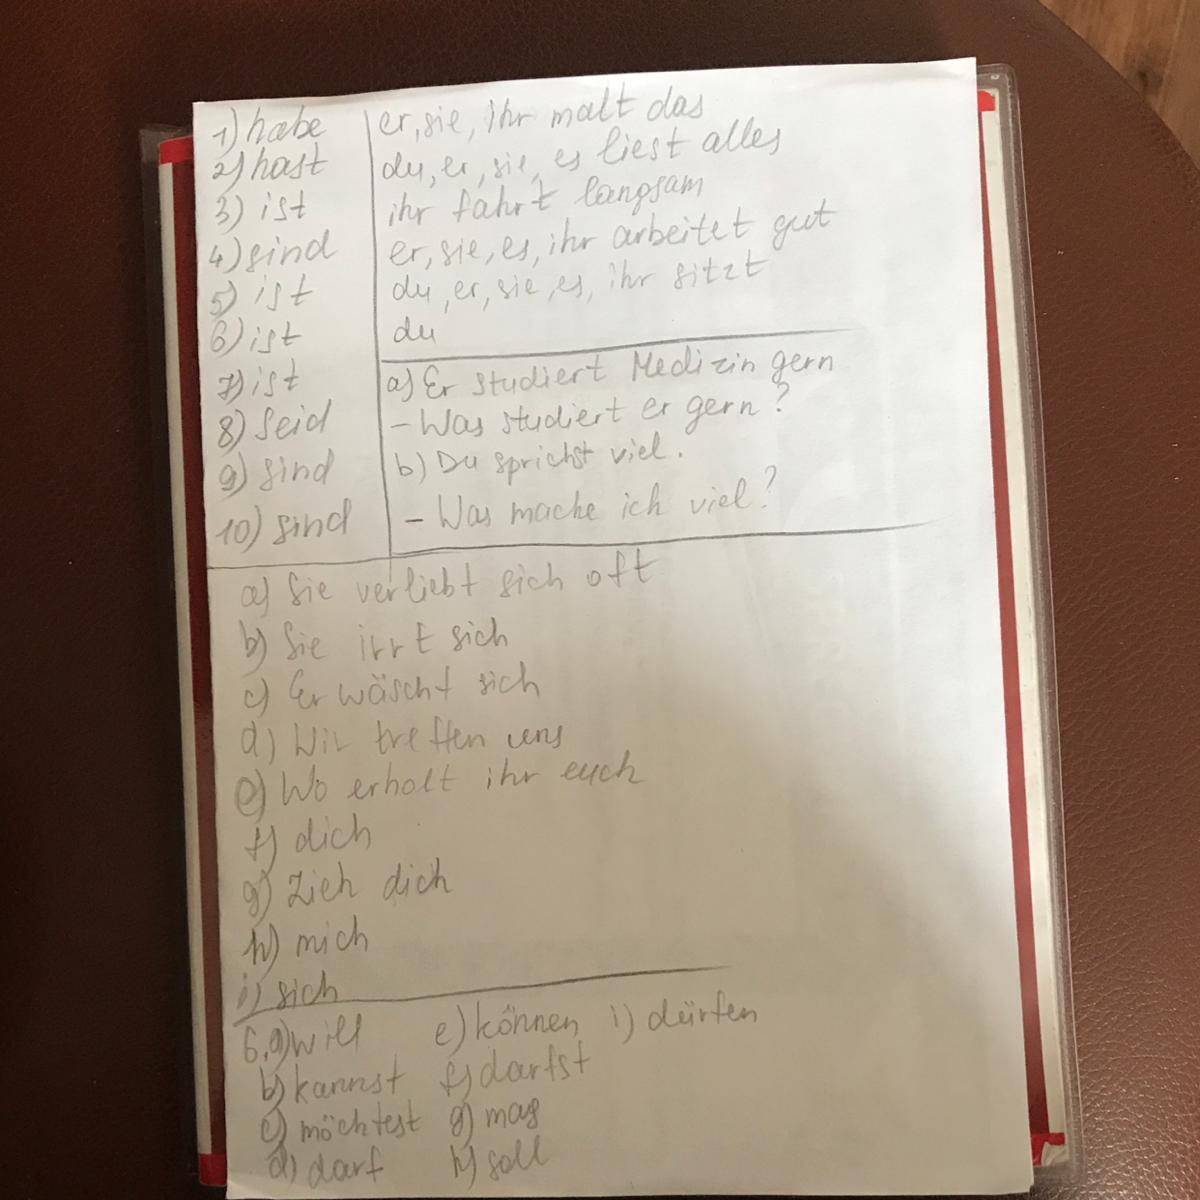 1) habe
2) hast
3) ist
4) sind
5) ist
6) ist
7) ist
8) Seid
9) sind
10) sind
er, sie, ihr malt das
du, er, sie, es liest alles
ihr fahrt langsam
er, sie, es, ihr arbeitet gut
du, er, sie, es, ihr sitzt
du
a) Er studiert Medizin gern
- Was studiert er gern?
b) Du sprichst viel.
- Was mache ich viel?
a) Sie verliebt sich oft
b) Sie irrt sich
c) Er wäscht sich
d) Wir treffen uns
e) Wo erholt ihr euch
f) dich
g) Zieh dich
h) mich
i) sich
6. a) will
b) kannst
c) möchtest
d) darf
e) können
f) darfst
g) mag
h) soll
i) dürfen